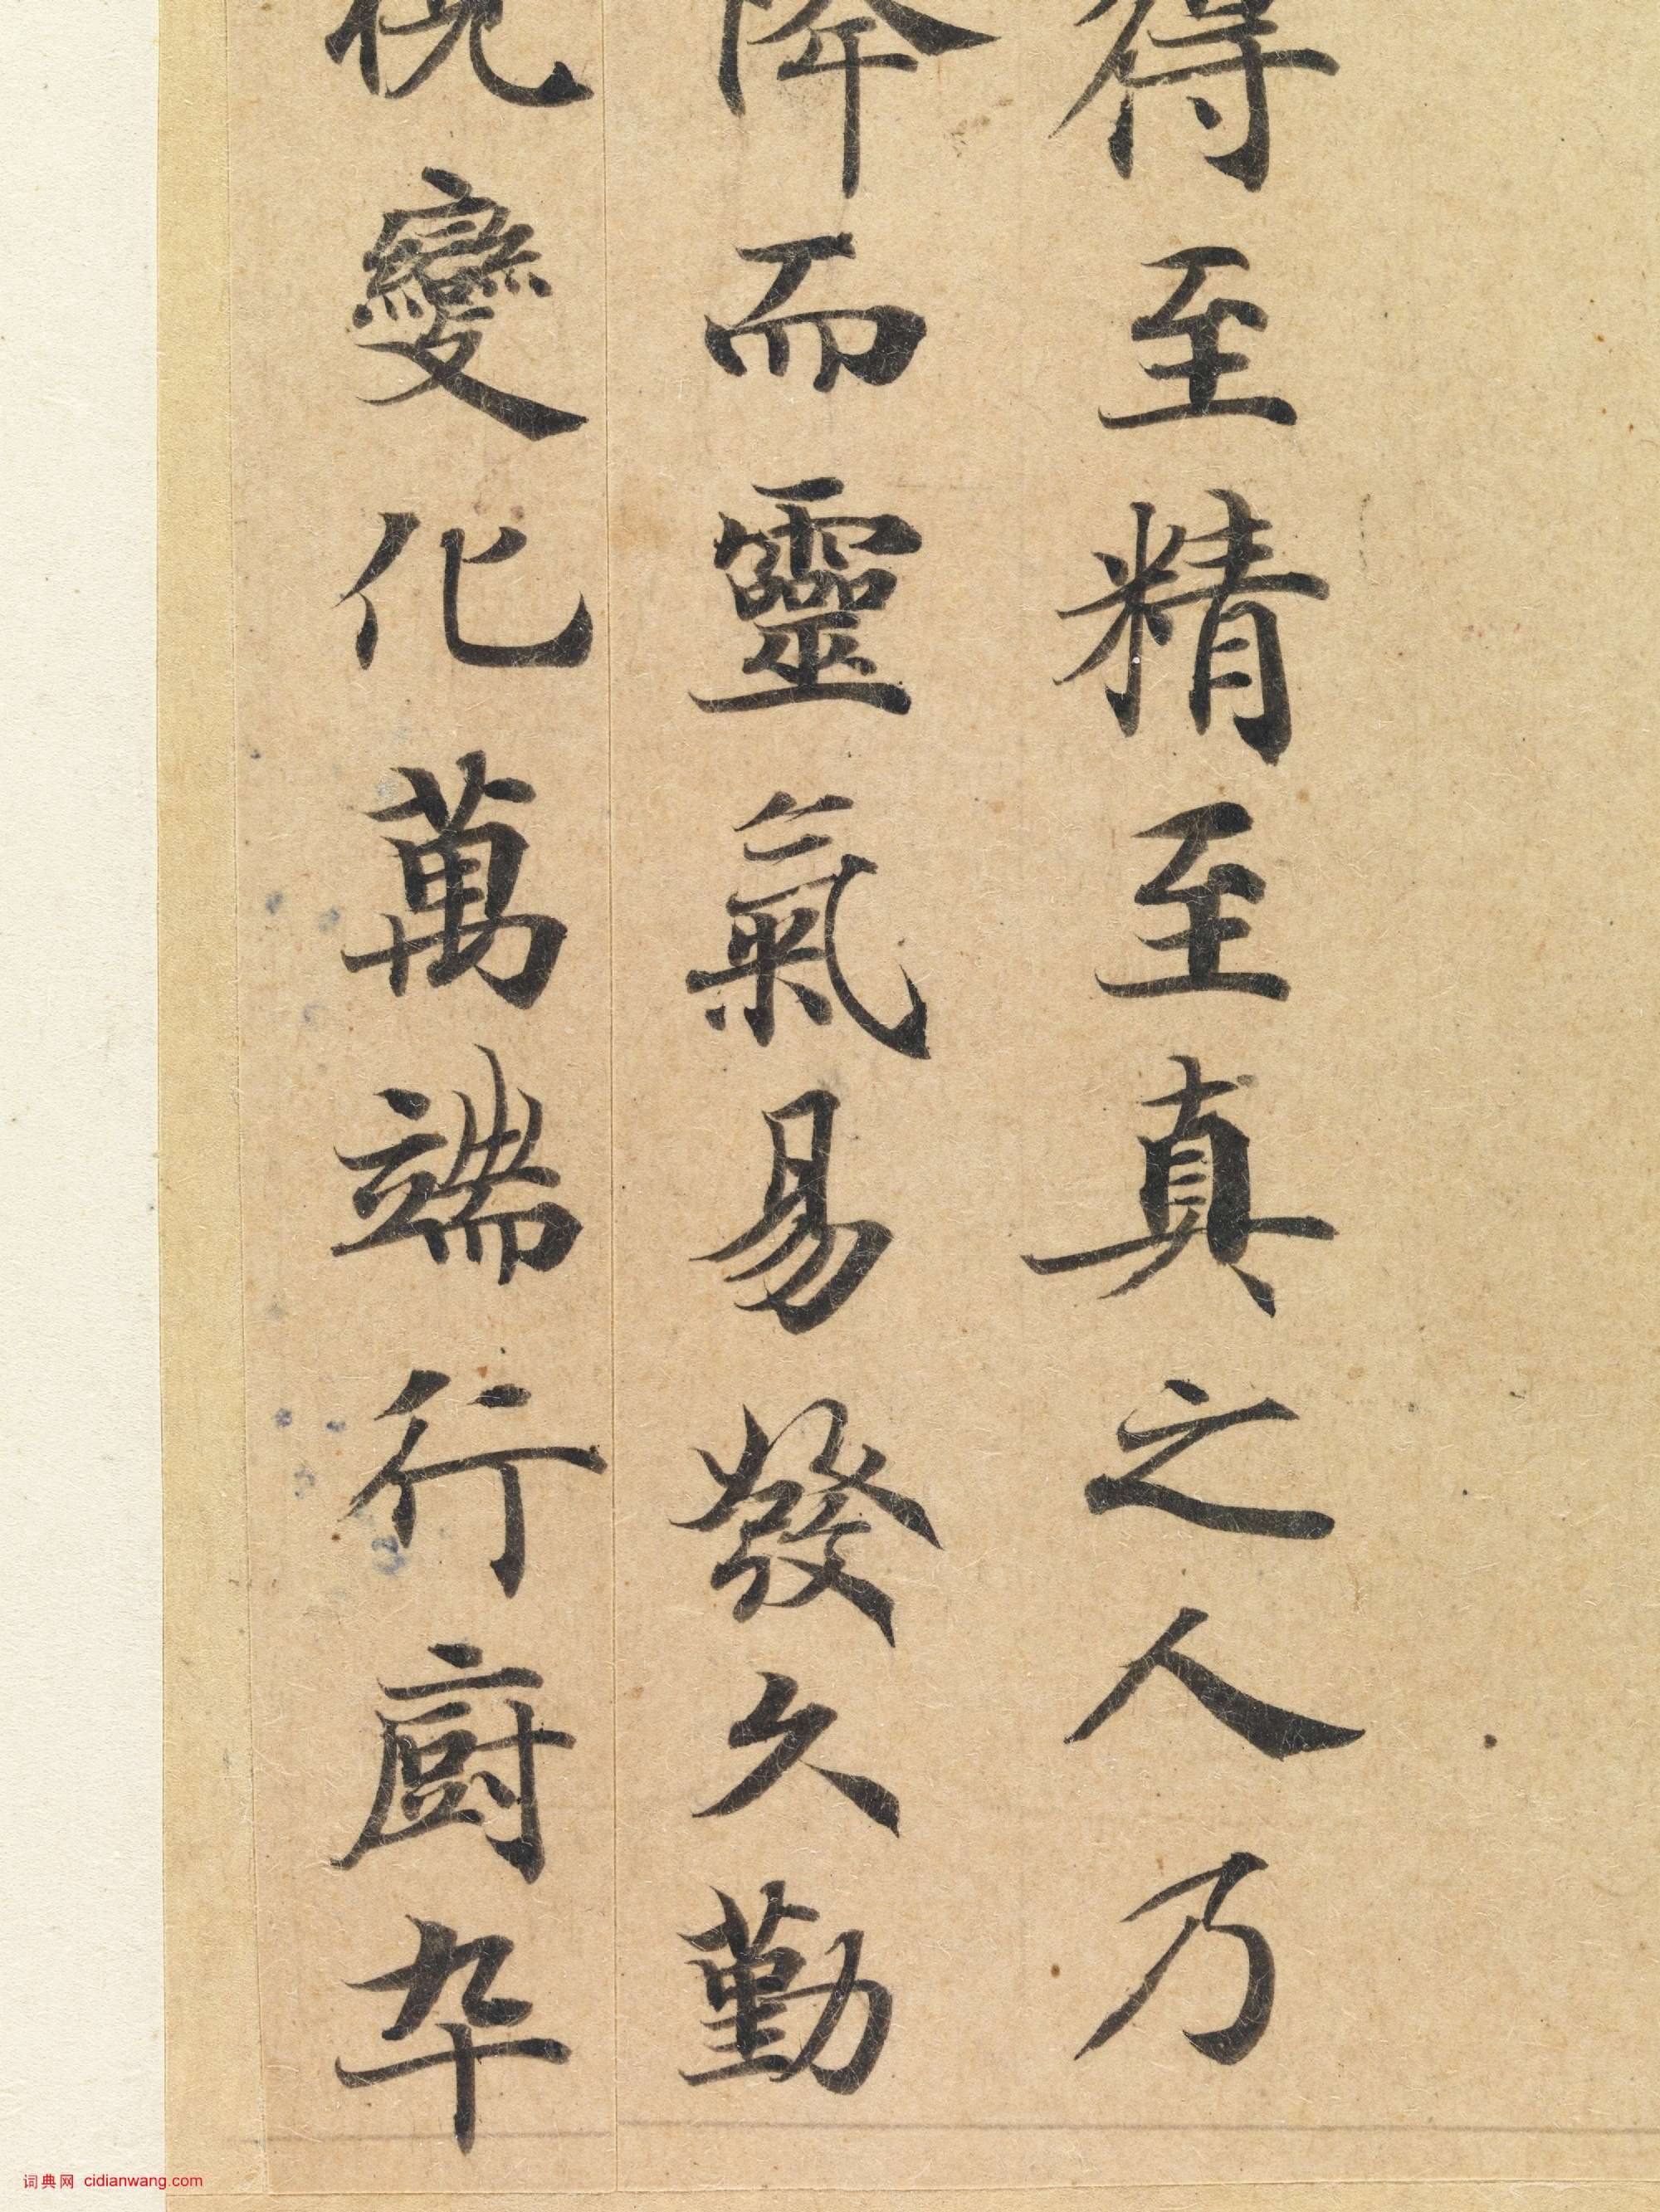 得至精至真之人乃
降而靈氣易發久勤
視變化萬端行厨卒
词典网 cidianwang.com